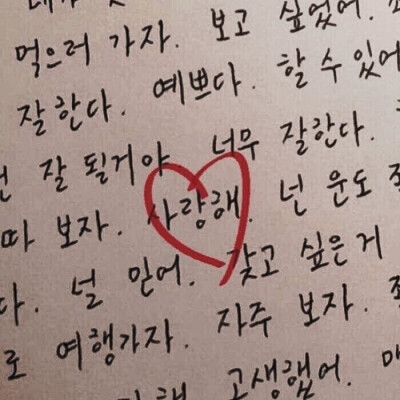 먹으러 가자. 보고 싶었어.
잘한다. 예쁘다. 할 수 있어
잘 될거야. 너무 잘한다.
따 보자. 사랑해. 넌 운도
다. 널 믿어. 갖고 싶은 거
로 여행가자. 자주 보자.
고생했어.